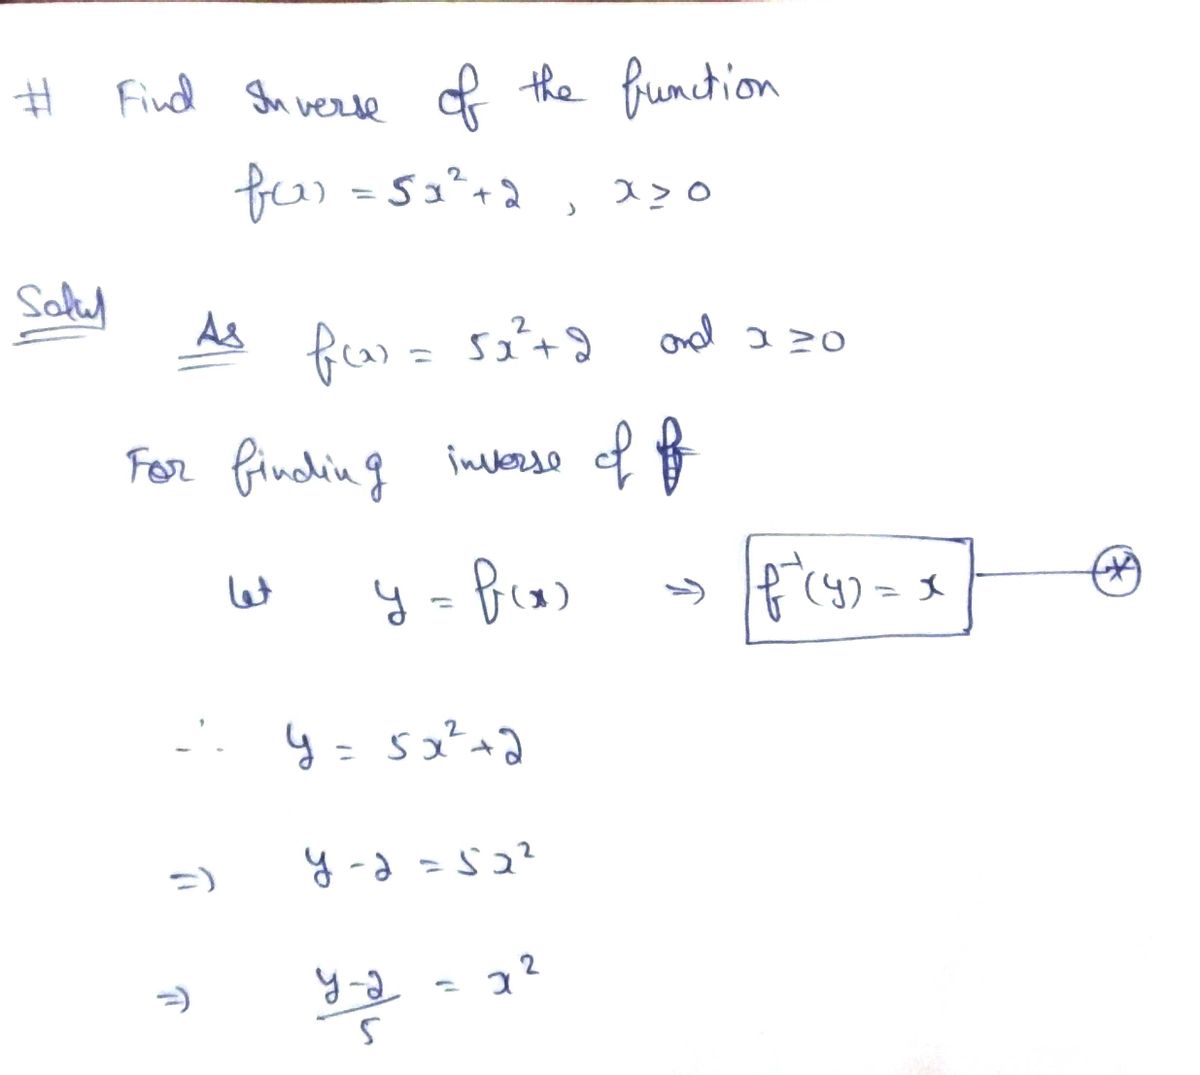 # Find Inverse of the function
f(x) = 5x²+2 , x ≥ 0
Solul
As f(x) = 5x²+2 and x ≥ 0
For finding inverse of f
let y = f(x) ⇒ f⁻¹(y) = x — ⊛
∴ y = 5x²+2
⇒ y-2 = 5x²
⇒ y-2/5 = x²